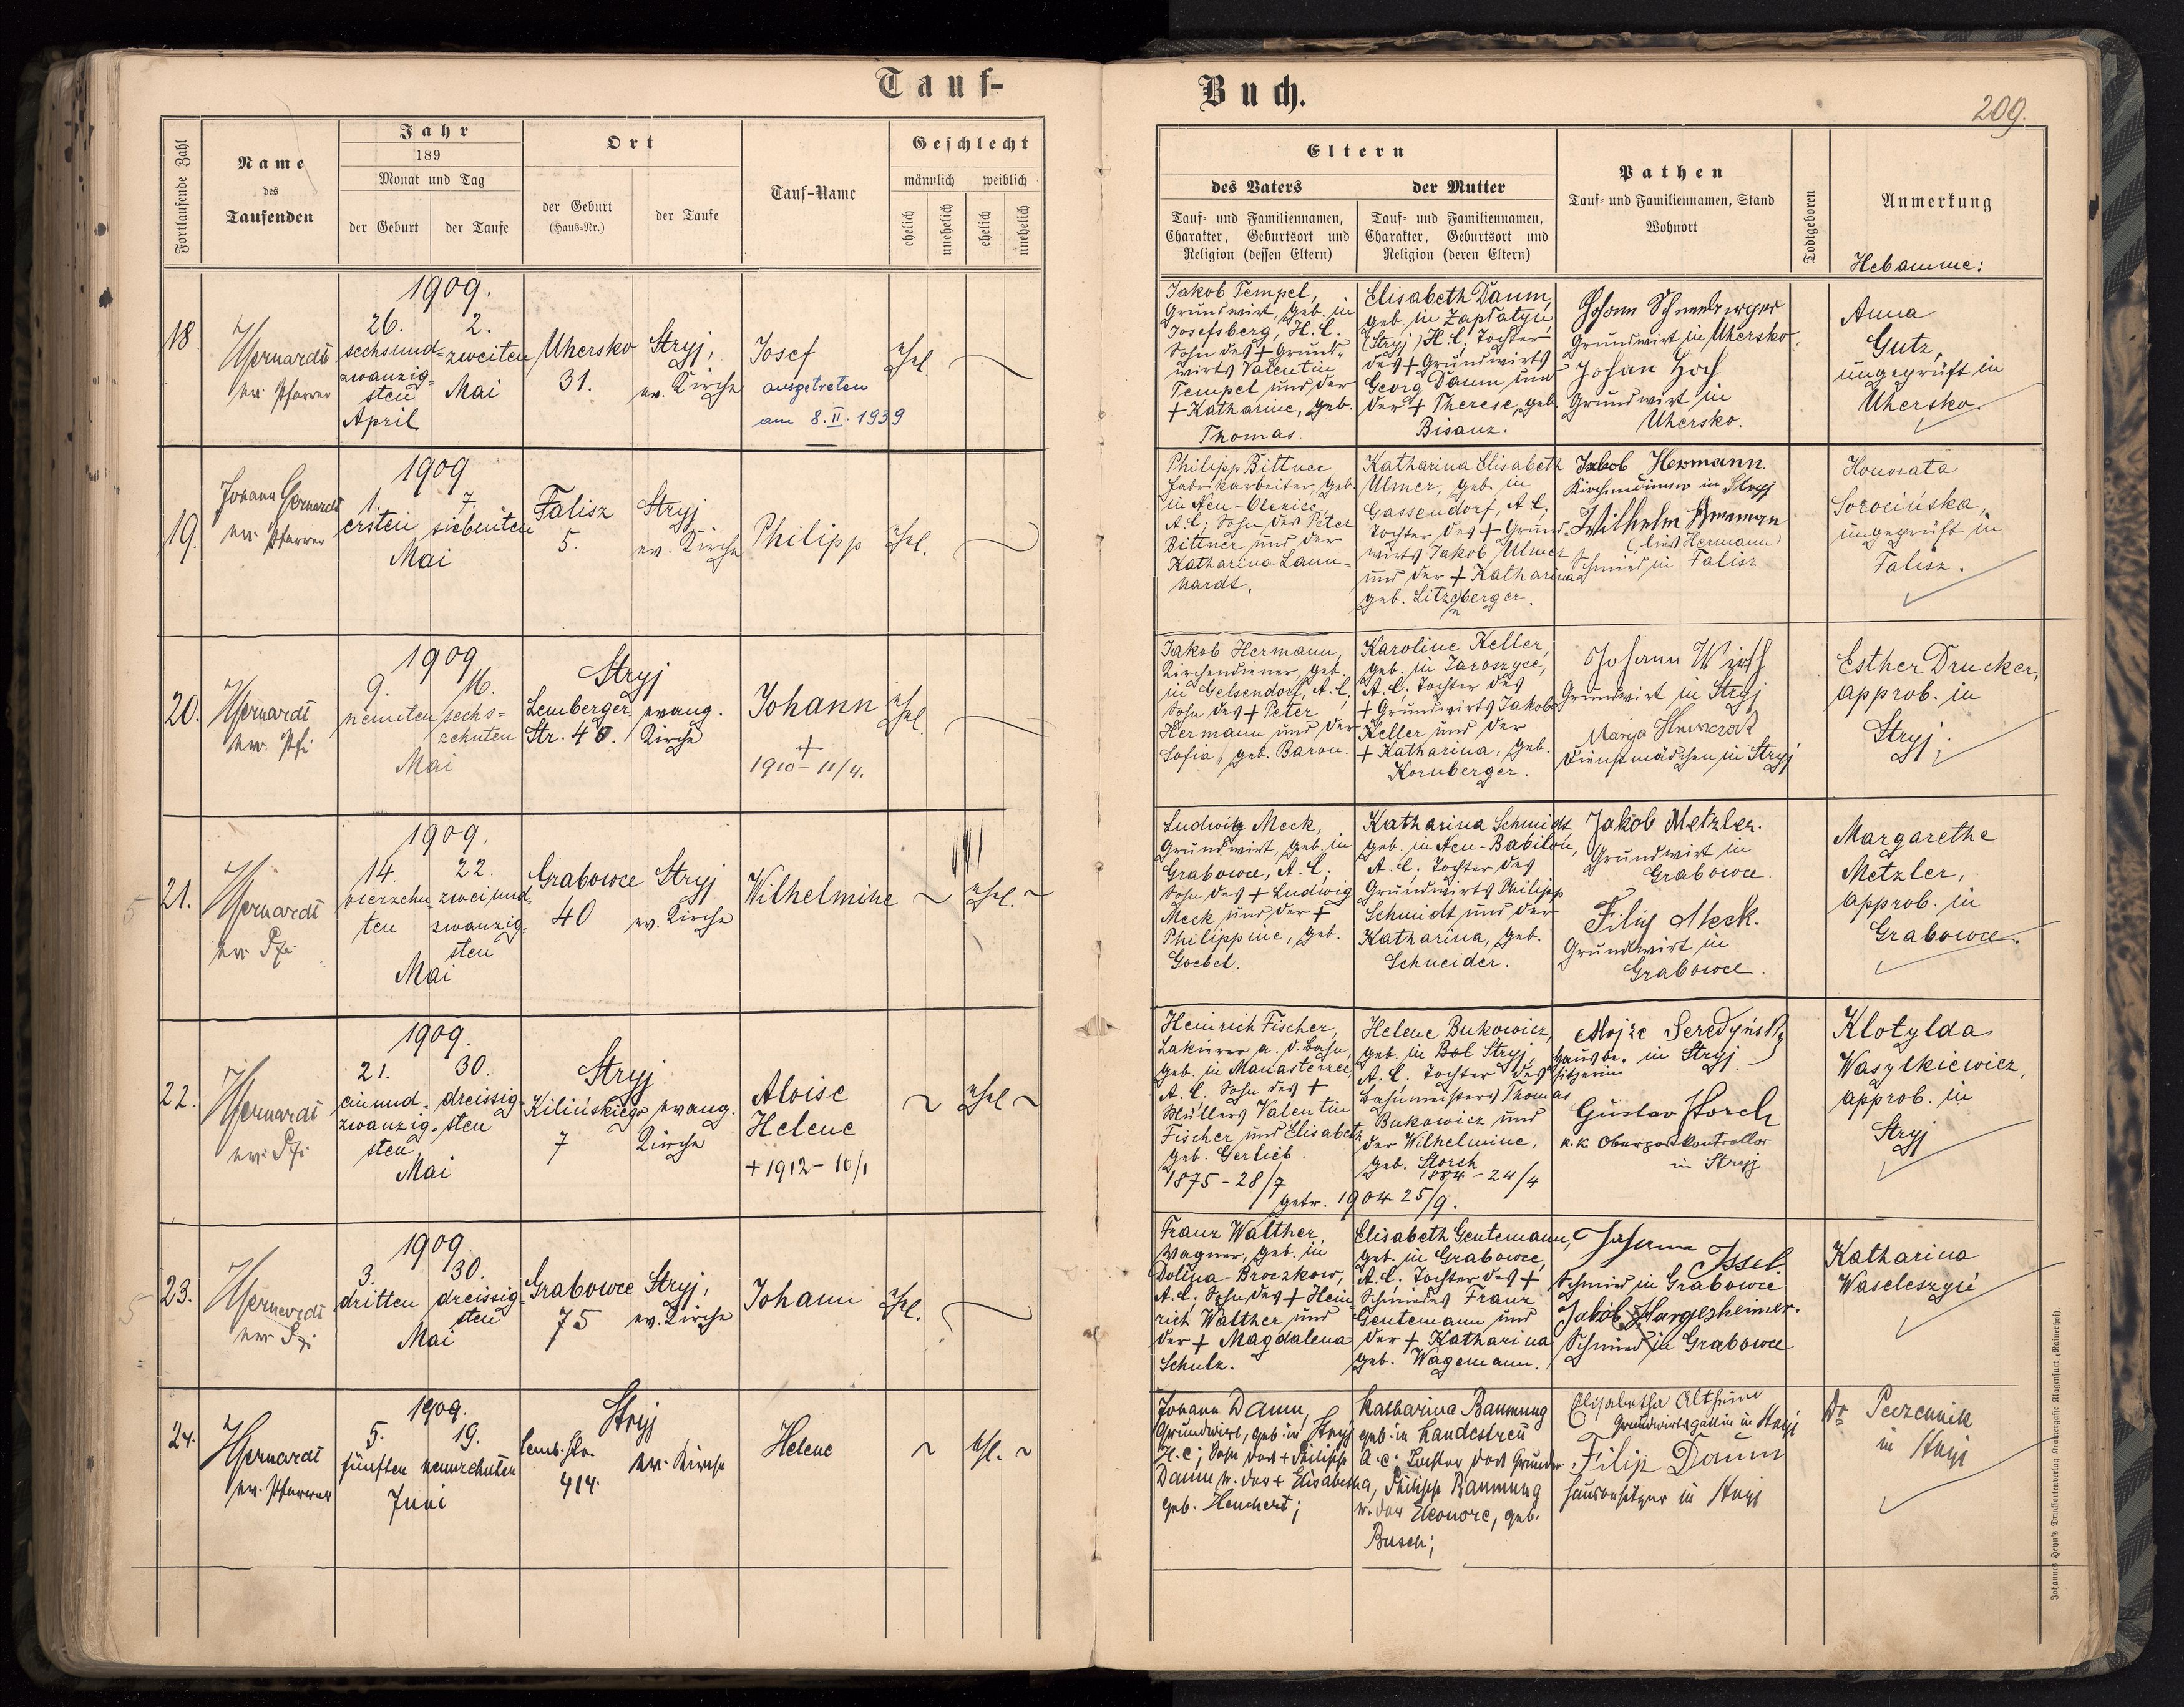 Tauf-
Fortlaufende Zahl
Name
des
Taufenden
Jahr
189
Monat und Tag
der Geburt
der Taufe
Ort
der Geburt
(Haus-Nr.)
der Taufe
Tauf-Name
Geschlecht
männlich
weiblich
ehelich
unehelich
ehelich
unehelich
18.
ev. Pfarrer
1909.
26.
sechsund-
zwanzig-
sten
April
2.
zweiten
Mai
Uhersko
31.
Stryj,
ev. Kirche
Josef
ausgetreten
am 8.II.1939
ehel.
19.
Johann
ev. Pfarrer
1909
1.
ersten
7.
siebenten
Mai
Falisz
5.
Stryj
ev. Kirche
Philipp
ehel.
20.
ev. Pfr
1909
9.
neunten
16.
sechs-
zehnten
Mai
Stryj
Lemberger
Str. 40.
evang.
Kirche
Johann
+
1910 - 11/4.
ehel.
21.
ev. Pfr
1909.
14.
vierzehn-
ten
22.
zweiund-
zwanzig-
sten
Mai
Grabowce
40
Stryj
ev. Kirche
Wilhelmine
ehel.
22.
ev. Pfr
1909.
21.
einund-
zwanzig-
sten
30.
dreissig-
sten
Mai
Stryj
Kilińskiego
7
evang.
Kirche
Aloise
Helene
+ 1912 - 10/1
ehel
23.
ev. Pfr
1909
3.
dritten
30.
dreissig-
sten
Mai
Grabowce
75
Stryj,
ev. Kirche
Johann
ehel.
24.
ev. Pfarrer
1909.
5.
fünften
19.
neunzehnten
Juni
Stryj
Lemb. Str.
414.
ev. Kirche
Helene
ehl.
Buch.
209.
Eltern
des Vaters
der Mutter
Tauf- und Familiennamen,
Charakter, Geburtsort und
Religion (dessen Eltern)
Tauf- und Familiennamen,
Charakter, Geburtsort und
Religion (deren Eltern)
Pathen
Tauf- und Familiennamen, Stand
Wohnort
Todtgeboren
Anmerkung
Hebamme:
Jakob Tempel,
Grundwirt, geb. in
Josefsberg, H.C.
Sohn des + Grund-
wirts Valentin
Tempel und der
+ Katharine, geb.
Thomas.
Elisabeth Daum,
geb. in Zaplatyn
(Stryj) H.C. Tochter
des + Grundwirts
Georg Daum und
der + Therese, geb.
Bisanz.
Johann
Grundwirt in Uhersko.
Johan Hoch
Grundwirt in
Uhersko.
Anna
Gutz,
ungeprüft in
Uhersko.
Philipp Bittner
Fabrikarbeiter, geb.
in Neu-Olexice,
A.C. Sohn des Peter
Bittner und der
Katharina Lann-
hardt.
Katharina Elisabeth
Ulmer, geb. in
Gassendorf, A.C.
Tochter des + Grund-
wirts Jakob Ulmer
und der + Katharina
geb. Litzenberger.
Jakob Hermann.
Kirchendiener in Stryj
Wilhelm
(lies Hermann)
Schmied in Falisz
Honorata
Sorocińska,
ungeprüft in
Falisz.
Jakob Hermann,
Kirchendiener, geb.
in Gelsendorf, A.C.
Sohn des + Peter
Hermann und der
Sofia, geb. Baron.
Karoline Keller,
geb. in Jaroszyce,
A.C. Tochter des
+ Grundwirts Jakob
Keller und der
+ Katharina, geb.
Kornberger.
Johann
Grundwirt in Stryj
Marya
Dienstmädchen in Stryj
Esther Drucker,
approb. in
Stryj.
Ludwig Meck,
Grundwirt, geb. in
Grabowce, A.C.,
Sohn des + Ludwig
Meck und der +
Philippine, geb.
Goebel.
Katharina Schmidt
geb. in Neu-Babilon,
A.C. Tochter des
Grundwirts Philipp
Schmidt und der
Katharina, geb.
Schneider.
Jakob Metzler.
Grundwirt in
Grabowce.
Filip Meck.
Grundwirt in
Grabowce.
Margarethe
Metzler,
approb. in
Grabowce.
Heinrich Fischer,
Lakierer a. d. Bahn,
geb. in Manasterzec
A.C. Sohn des +
Müllers Valentin
Fischer und Elisabeth
geb. Gerlieb.
1875 - 28/7
Helene Bukowicz,
geb. in Stryj,
A.C. Tochter des
Bahnmeisters Thomas
Bukowicz und
der Wilhelmine,
geb. Storch
1884 - 24/4
getr. 1904 25/9.
Hausbe- in Stryj
sitzerin
Gustav Storch
k.k. Oberpostkontrollor
in Stryj
Klotylda
Wasylkiewicz,
approb. in
Stryj
Franz Walther,
Wagner, geb. in
Dolina-Broczkow,
A.C. Sohn des + Hein-
rich Walther und
der + Magdalena
Schulz.
Elisabeth Gentemann,
geb. in Grabowce,
A.C. Tochter des +
Schmiedes Franz
Gentemann und
der + Katharina
geb. Wagemann.
Johann Issel.
Schmied in Grabowce
Jakob Hargesheimer.
Schmied in Grabowce
Katharina
Johann Daum,
Grundwirt, geb. in Stryj
H.C; Sohn des + Philipp
Daum u. der + Elisabetha,
geb. Henchert;
Katharina Baumung
geb. in Landestreu
A.C. Tochter des Grundw.
Philipp Baumung
u. der Eleonore, geb.
Busch;
Elisabetha
Grundwirtsgattin in Stryj
Filip Daum
Hausbesitzer in Stryj
Dr
in Stryj